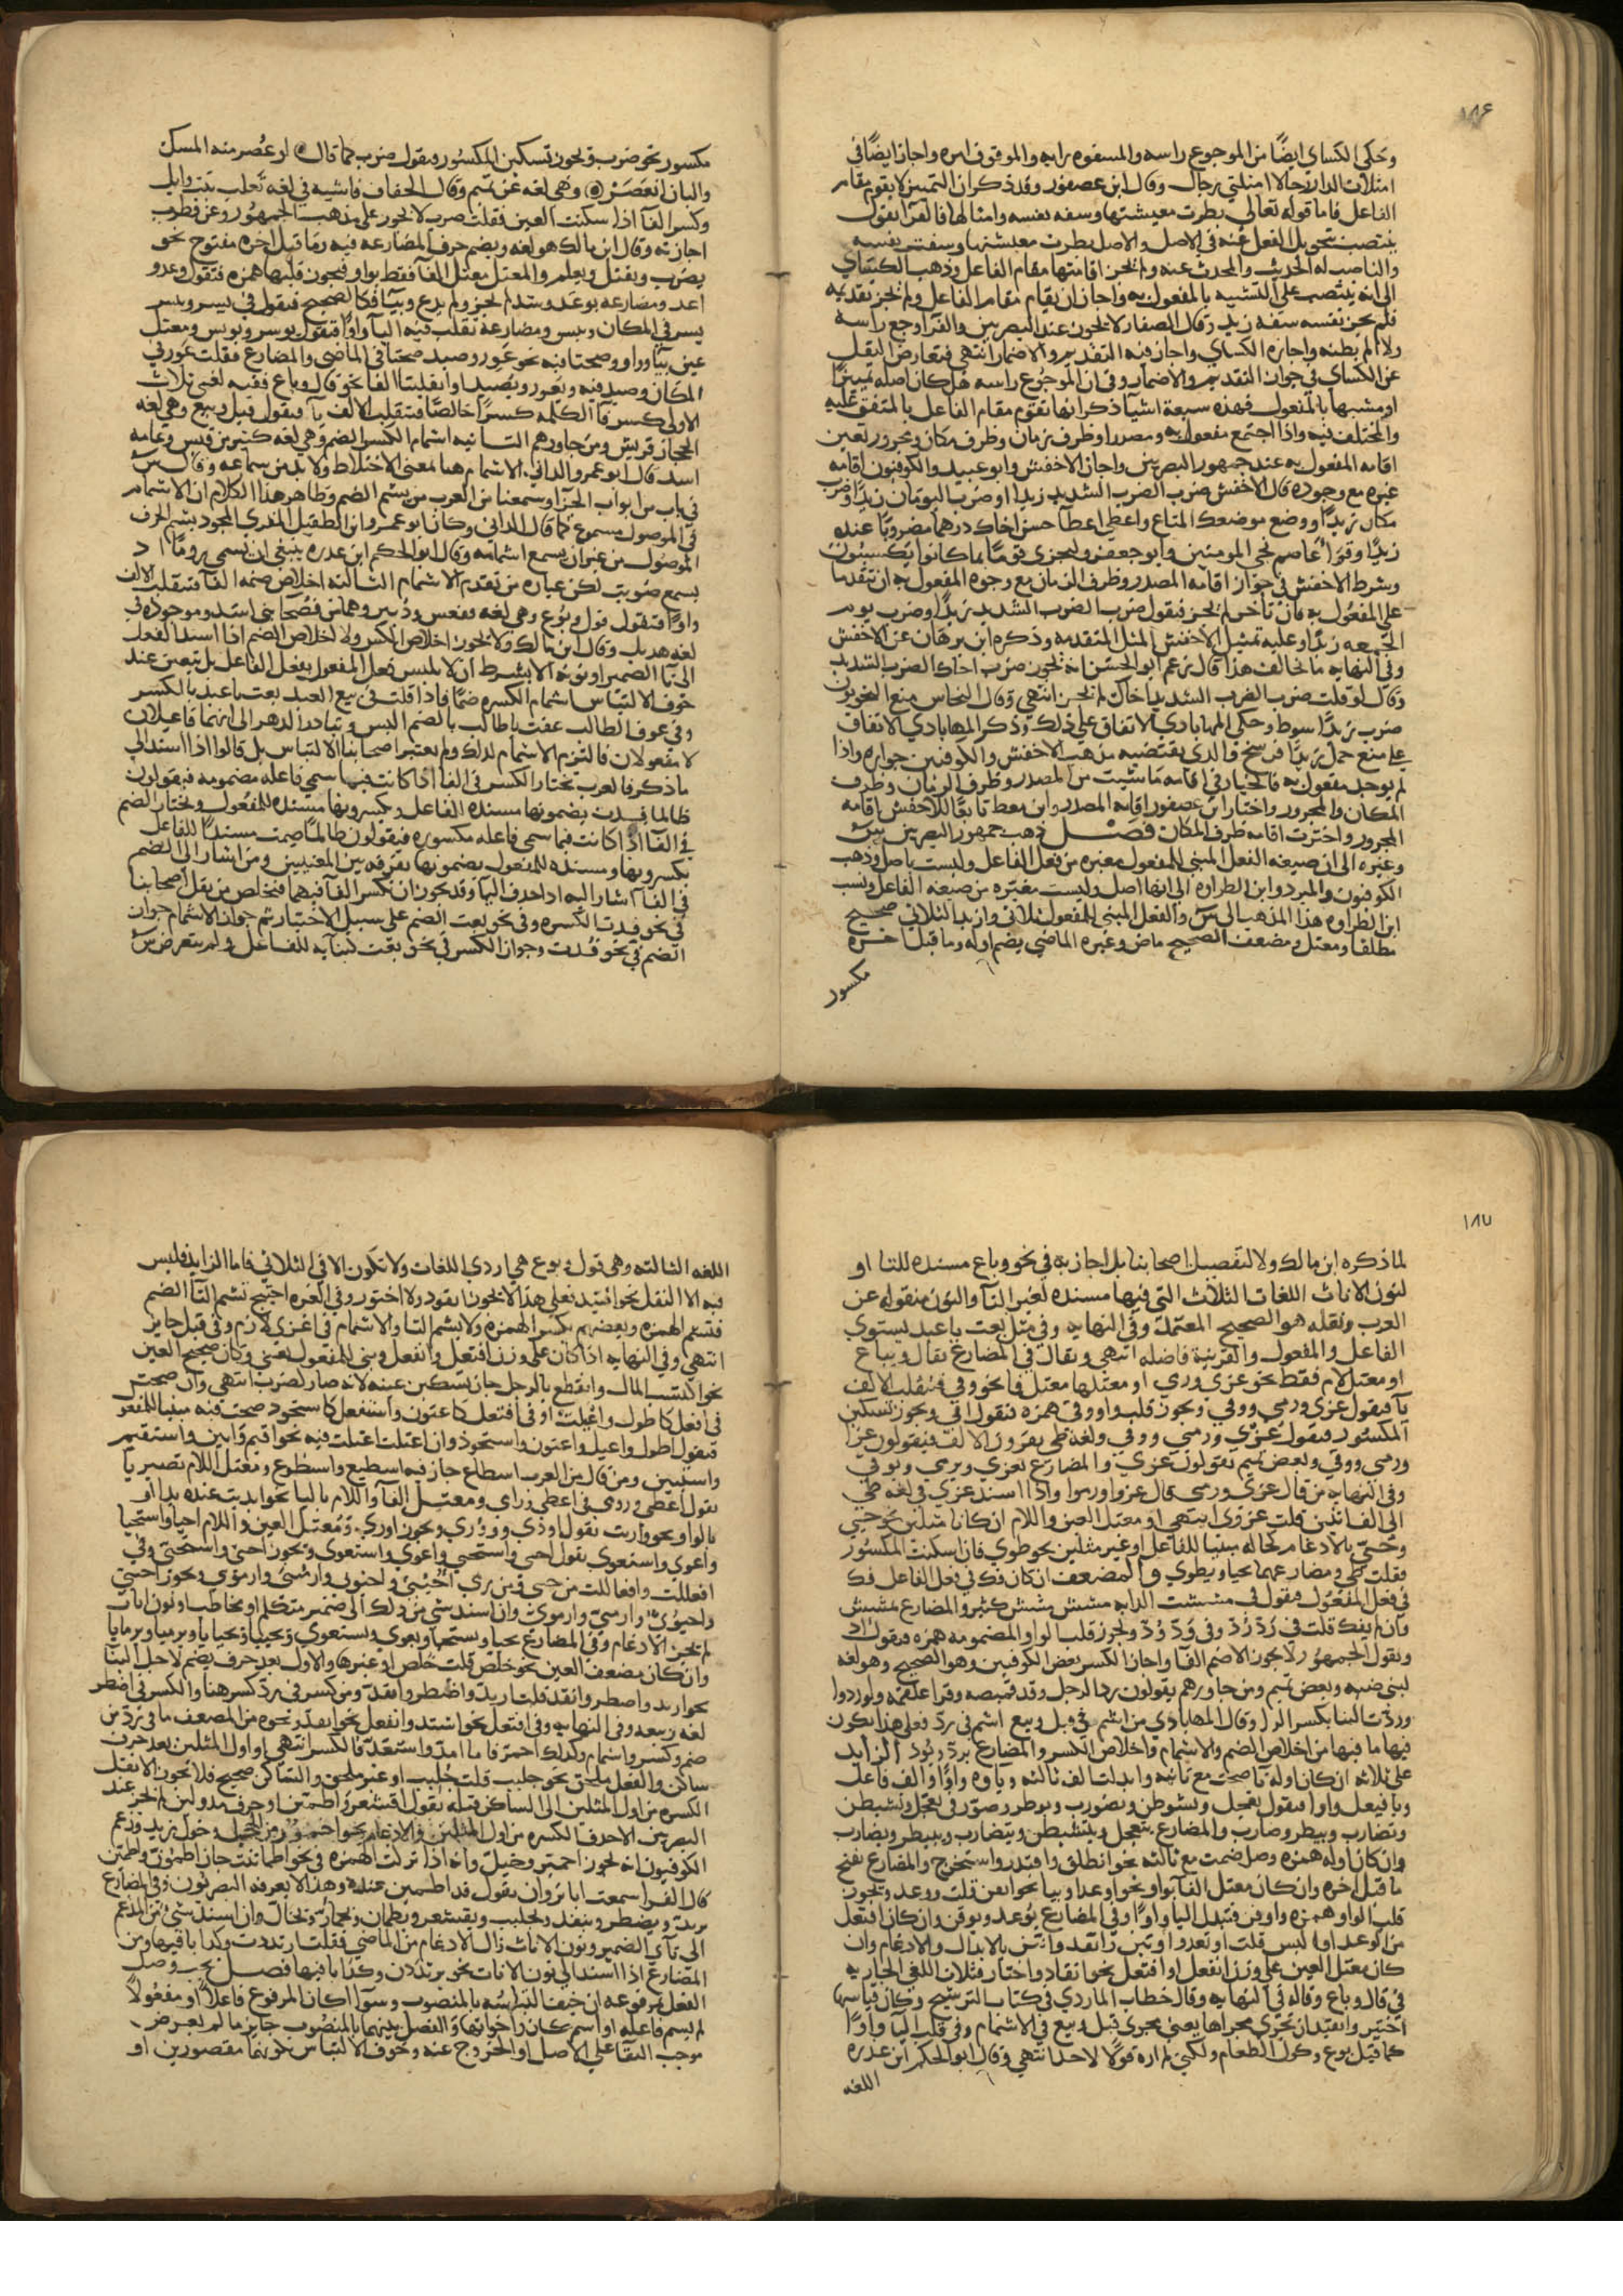 ١٨٦
وحكى الكساي ايضا من الموجوع راسه والمسفوه رايه والموفوق امره واجاز ايضا في
امتلات الدار رجالا امتلي رجال وقال ابن عصفور وقد ذكر ان التمييز لا يقوم مقام
الفاعل فاما قوله تعالى بطرت معيشتها وسفه نفسه وامثالها فالفرا يقول
ينتصب بتحويل الفعل عنه في الاصل والاصل بطرت معيشتها وسفهت نفسه
والناصب له الحديث والمحدث عنه ولم يجز اقامتها مقام الفاعل وذهب الكساي
الى انه ينتصب على التشبيه بالمفعول به واجاز ان يقام مقام الفاعل ولم نجز تقديمه
فلم يجز نفسه سفه زيد وقال الصفار لا يجوز عند البصريين والفرا وجع راسه
ولا الم بطنه واجازه الكساي واجاز فيه التقديم والاضمار انتهى فتعارض النقل
عن الكساي في جواز التقديم والاضمار وفي ان الموجوع راسه هل كان اصله تمييزا
او مشبها بالمفعول فهذه سبعة اشيا ذكر انها تقوم مقام الفاعل بالمتفق عليه
والمختلف فيه واذا اجتمع مفعول به ومصدر او ظرف زمان وظرف مكان ومجرور تعين
اقامه المفعول به عند جمهور البصريين واجاز الاخفش وابو عبيد والكوفيون اقامه
غيره مع وجوده قال الاخفش ضرب الضرب الشديد زيدا او ضرب اليومان زيدا وضرب
مكانك زيدا ووضع موضعك المتاع واعطي اعطا حسن اخاك درهما مضروبا عنده
زيدا وقرا عاصم نجي المومنين وابو جعفر ليجزى قوما بما كانوا يكسبون
وشرط الاخفش في جواز اقامه المصدر وظرف الزمان مع وجود المفعول به ان تتقدما
على المفعول به فان تاخر لم يجز فيقول ضرب الضرب الشديد زيدا وضرب يوم
الجمعه زيدا وعليه تمثيل الاخفش المثل المتقدمه وذكره ابن برهان عن الاخفش
وفي النهايه ما يخالف هذا قال زعم ابو الحسن انه يجوز ضرب اخاك الضرب الشديد
وقال لو قلت ضرب الضرب الشديد اخاك لم يجز انتهى وقال النحاس منع النحويون
ضرب زيدا سوط وحكى المهابادي الاتفاق على ذلك وذكر المهابادي الاتفاق
على منع حمل زيدا فرسخ والذي يقتضيه مذهب الاخفش والكوفيين جوازه واذا
لم يوجد مفعول به فالخيار في اقامه ما شيت من المصدر وظرف الزمان وظرف
المكان والمجرور واختار ابن عصفور اقامه المصدر وابن معط تابعا للاخفش اقامه
المجرور واخترت اقامه ظرف المكان فصل ذهب جمهور البصريين س
وغيره الى ان صيغه الفعل المبني للمفعول مغيره من فعل الفاعل وليست باصل وذهب
الكوفيون والمبرد وابن الطراوه الى انها اصل وليست مغيره من صيغه الفاعل ونسب
ابن الطراوه هذا المذهب الى س والفعل المبني للمفعول ثلاثي وازيد الثلاثي صحيح
مطلقا ومعتل ومضعف الصحيح ماض وغيره الماضي يضم اوله وما قبل اخره
مكسور
مكسور نحو ضرب ويجوز تسكين المكسور فيقول ضرب كما قال لو عصر منه المسك
والبان انعصر وهي لغه عن تميم وقال الخفاف فاشيه في لغه تغلب بنت وايل
وكسر الفا اذا سكنت العين فقلت ضرب لا يجوز على مذهب الجمهور وعن قطرب
اجازته وقال ابن مالك هو لغه ويضم حرف المضارعه فيه وما قبل اخره مفتوح نحو
يضرب ويقتل ويعلم والمعتل معتل الفا فقط بواو فيجوز قلبها همزه فتقول وعد و
اعد ومضارعه يوعد
يسر في المكان ويبس ومضارعه تقلب فيه اليا واوا فتقول يوسر ويوبس ومعتل
عين بيا وواو وصحتا فيه نحو عور وصيد صحتا في الماضي والمضارع فقلت عور في
المكان وصيد فيه ويعور ويصيد او انقلبتا الفا نحو قال وباع ففيه لغى ثلاث
الاولى كسر فا الكلمه كسرا خالصا فتنقلب الالف يا فيقول قيل وبيع وهي لغه
الحجاز قريش ومن جاورهم الثانيه اشمام الكسر الضم وهي لغه كثير من قيس وعامه
اسد قال ابو عمرو الداني الاشمام هنا بمعنى الاختلاط ولا بد من سماعه وقال س
في باب من ابواب الجزا وسمعنا من العرب من يشم الضم وظاهر هذا الكلام ان الاشمام
في الموصول مسموع كما قال الداني وكان ابو عمرو وابن الطفيل المقري المجود يشم الحرف
الموصول من غير ان يسمع اشمامه وقال ابو الحكم ابن عذره ينبغي ان يسمى روما اذ
يسمع صويت لكن عباره من تقدم الاشمام الثالثه اخلاص ضمه الفا فتنقلب الالف
واوا فتقول قول وبوع وهي لغه فقعس ودبير وهما من فصحا بني اسد وموجوده في
لغه هذيل وقال ابن مالك ولا يجوز اخلاص الكسر ولا اخلاص الضم اذا اسند الفعل
الى تا الضمير او نونه الا بشرط ان لا يلتبس فعل المفعول بفعل الفاعل بل يتعين عند
خوف الالتباس اشمام الكسره ضما فاذا قلت في بيع العبد بعت يا عبد بالكسر
وفي عوق الطالب عقت يا طالب بالضم البس وتبادر الذهر الى انهما فاعلان
لا مفعولان فالتزم الاشمام لذلك ولم يعتبر اصحابنا الالتباس بل قالوا اذا اسند الى
ما ذكر فالعرب تختار الكسر في الفا اذا كانت فيما سمي فاعله مضمومه فيقولون
ظالما قدت يضمونها مسنده الفاعل ويكسرونها مسنده للمفعول ويختار الضم
في الفا اذا كانت فيما سمي فاعله مكسوره فيقولون ظالما ضمت مسندا للفاعل
يكسرونها ومسنده للمفعول يضمونها تفرقه بين المعنيين ومن اشار الى الضم
في الفا اشار اليه اذا حذف اليا وقد يجوز ان تكسر الفا فيهما فتخلص من نقل اصحابنا
في نحو قدت الكسره وفي نحو بعت الضم على سبيل الاختيار ثم جواز الاشمام جواز
الضم في نحو قدت وجواز الكسر في نحو بعت كبنايه للفاعل ولم يتعرض س
١٨٧
لما ذكره ابن مالك ولا لتفصيل اصحابنا بل اجاز به في نحو وباع مسنده للتا او
لنون الاناث اللغات الثلاث التي فيها مسنده لغير التا والنون منقوله عن
العرب ونقله هو الصحيح المعتمد وفي النهايه وفي مثل بعت يا عبد يستوي
الفاعل والمفعول والقرينه فاضله انتهى ويقال في المضارع يقال ويباع
او معتل لام فقط نحو غزي وري او معتلها معتل فا نحو وقي فتنقلب الالف
يا فيقول غزي ورمي ووقي ويجوز قلب واو وقي همزه فيقول اقي ويجوز تسكين
المكسور فيقول غزي ورمي ووقي ولغه طي يقرون الالف فيقولون غزا
ورمى ووقى وبعض تميم يقولون غزي والمضارع يغزي ويرمى ويوقى
وفي النهايه من قال غزي ورمي قال غزوا ورموا واذا اسند غزي في لغه طي
الى الف اثنين قلت غزوا انتهى او معتل العين واللام ان كانا مثلين نحو حيي
وحي بالادغام كحاله مبنيا للفاعل او غير مثلين نحو طوي فان سكنت المكسور
فقلت طي ومضارعهما يحيا ويطوى والمضعف ان كان فك في فعل الفاعل فك
في فعل المفعول فيقول في مششت الدابه مشش مشش كثير والمضارع يمشش
وان لم يفك قلت في رد رد وفي ود ود ويجوز قلب الواو المضمومه همزه فيقول اد
ويقول الجمهور لا يجوز الا ضم الفا واجاز الكسر بعض الكوفيين وهو الصحيح وهو لغه
لبني ضبه وبعض تميم ومن جاورهم يقولون رد الرجل وقد قميصه وقرا علقمه ولو ردوا
وردت الينا بكسر الرا وقال المهابادي من اشم في قيل وبيع اشم في رد فعلى هذا يكون
فيها ما فيها من اخلاص الضم والاشمام واخلاص الكسر والمضارع يرد ويود الزايد
على ثلاثه ان كان اوله تا ضمت مع ثانيه وابدلت الف ثالثه وياوه واوا والف فاعل
ويا فيعل واوا فيقول تعجل وتشوطن وتضورب وبوطر وضورب في تعجل وتشيطن
وتضارب وبيطر وضارب والمضارع يتعجل ويتشيطن ويتضارب ويبيطر ويضارب
وان كان اوله همزه وصل ضمت مع ثالثه نحو انطلق واقتدر واستخرج والمضارع يفتح
ما قبل اخره وان كان معتل الفا بواو نحو اوعد او بيا نحو ايقن قلت ووعد ويجوز
قلب الواو همزه واوقن فتبدل اليا واوا وفي المضارع يوعد ويوقن وان كان افتعل
من الوعد او اليبس قلت اوتعد واوتبس واتعد واتبس بالابدال والادغام وان
كان معتل العين على وزن انفعل او افتعل نحو انقاد واختار فثلاث اللغى الجاريه
في قال وباع وقاله في النهايه وقال خطاب الماردي في كتاب الترشيح وكان قياسها
اختير وانقيد ان تجري مجراها يعني مجرى قيل وبيع في الاشمام وفي قلب اليا واوا
كما قيل بوع وكول الطعام ولكني لم اره قولا لاحد انتهى وقال ابو الحكم ابن عذره
اللغه
اللغه الثالثه وهي قول وبوع هي اردي اللغات ولا تكون الا في الثلاثي فاما الزايد فليس
فيه الا النقل نحو انقيد فعلى هذا لا يجوز انقود ولا اختور وفي الغره اجتيح تشم التا الضم
فتضم الهمزه وبعضهم يكسر الهمزه ولا يشم التا والاشمام في اغزي لازم وفي قيل جايز
انتهى وفي النهايه اذا كان على وزن افتعل وانفعل وبني للمفعول يعني وكان صحيح العين
نحو اكتسب المال وانقطع بالرجل جاز تسكين عينه لانه صار كضرب انتهى وان صحت
في افعل كاطول واغيلت او في افتعل كاعتون واستفعل كاستحوذ صحت فيه مبنيا للمفعول
فيقول اطول واغيل واعتون واستحوذ وان اعتلت اعتلت فيه نحو اقيم وابين واستقيم
واستبين ومن قال من العرب اسطاع جاز فيه اسطيع واسطوع ومعتل اللام تصير يا
يقول اعطي وروي في اعطى وراي ومعتل الفا واللام باليا نحو ايديت عنده يدا او
بالواو نحو واريت تقول اودي وووري ويجوز اوري ومعتل العين واللام احيا واستحيا
واعوي واستعوي يقول احيي واستحيي واعوي واستعوي ويجوز احي واستحي وفي
لم يجز الادغام وفي المضارع يحيا ويستحيا ويعوى ويستعوى
وان كان مضعف العين نحو خلص قلت خلص او غيرها والاول بعد حرف يضم لاجل البنا
نحو ارتد واضطر وانقد قلت ارتد واضطر وانقد ومن كسر في رد كسر هنا والكسر في اضطر
لغه ربيعه وفي النهايه وفي افتعل نحو اشتد وانفعل نحو انقد ونحوه من المضعف ما في رد من
ضم وكسر واشمام وكذلك احمر فاما امد واستعد فالكسر انتهى او اول المثلين بعد حرف
ساكن والفعل ملحق نحو جلبب قلت جلبب او غير ملحق والساكن صحيح فلا يجوز الا نقل
الكسره من اول المثلين الى الساكن قبله تقول اقشعر واطمئن او حرف مد ولين لم يجز عند
البصريين الا حذف الكسره من اول المثلين والادغام نحو احمور من الخجل وحول زيد وزعم
الكوفيون انه يجوز احمير وخيل وانه اذا تركت الهمزه في نحو اطمانت جاز اطمون واطمين
قال الفرا سمعت ابا ثروان يقول قد اطمين عنده وهذا لا يعرفه البصريون وفي المضارع
يرتد ويضطر وينقد ويجلبب ويقشعر ويطمان ويحمار وان اسند شي من المدغم
الى تا الضمير ونون الاناث زال الادغام من الماضي فقلت ارتددت وكذا باقيها ومن
المضارع اذا اسند الى نون الاناث نحو يرتددن وكذا باقيها فصل يجب وصل
الفعل بمرفوعه ان خيف التباسه بالمنصوب وسوا اكان المرفوع فاعلا او مفعولا
لم يسم فاعله او اسم كان واخواتها والفصل بينهما بالمنصوب جايز ما لم يعرض
موجب البقا على الاصل او الخروج عنه وخوف الالتباس بكونهما مقصورين او